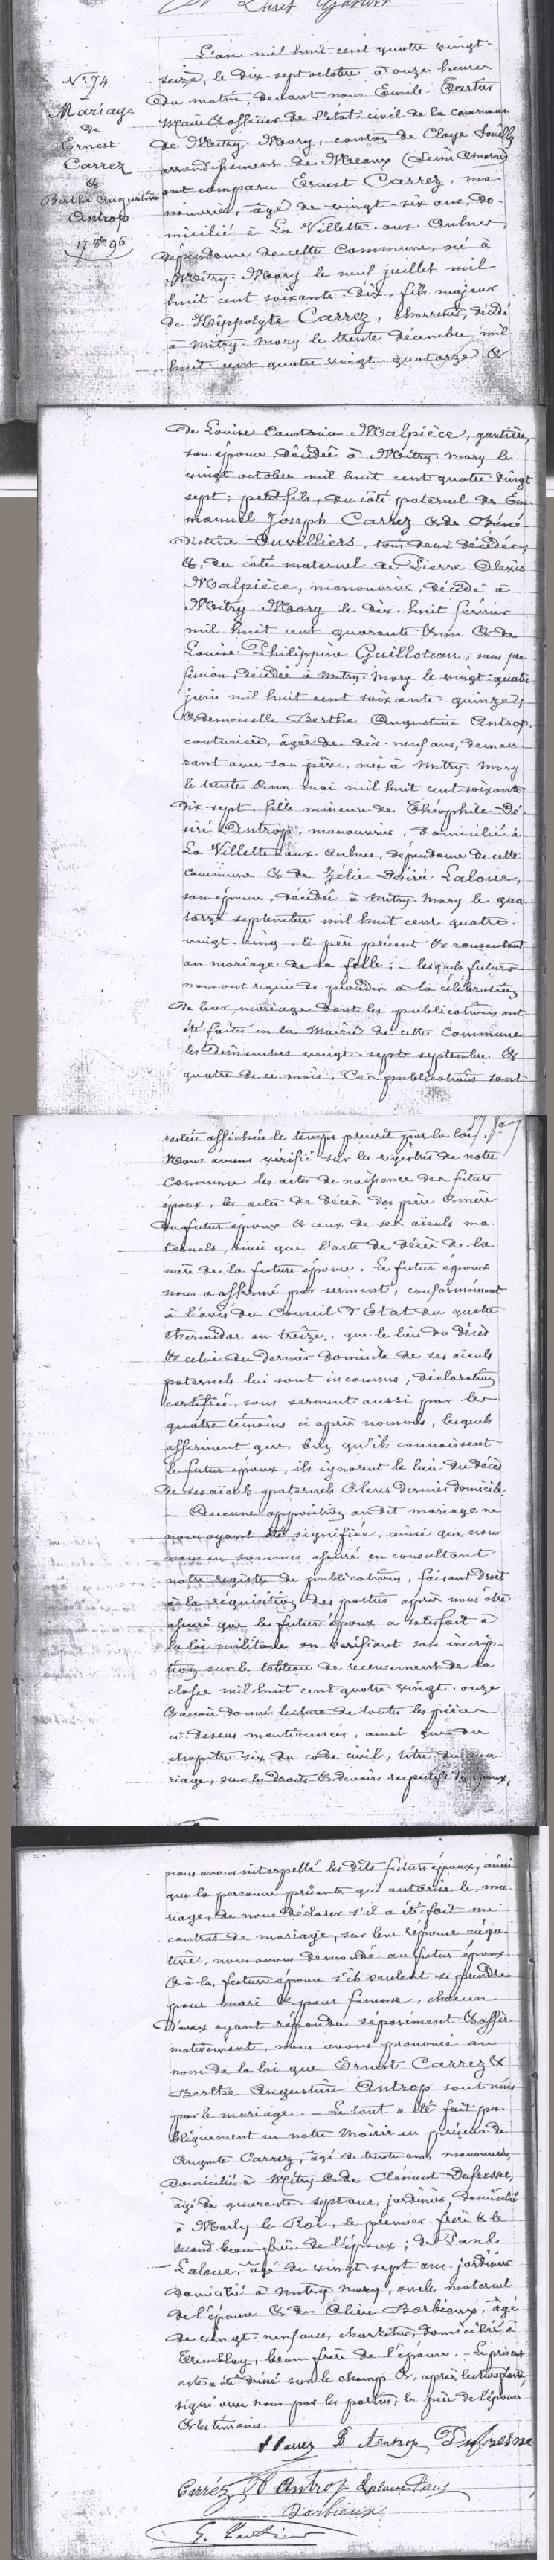 L'an mil huit cent quatre vingt-
seize, le dix sept octobre à onze heures
du matin, devant nous Emile
Maire officier de l'état-civil de la commune
de Mitry-Mory, canton de Claye Souilly
arrondissement de Meaux (Seine & Marne)
ont comparu Ernest Carrez, ma-
nouvrier, âgé de vingt-six ans, do-
micilié à La Villette-aux-Aulnes
dépendance de cette Commune, né à
Mitry-Mory le neuf juillet mil
huit cent soixante-dix, fils majeur
de Hippolyte Carrez, décédé
à Mitry-Mory le trente décembre mil
huit cent quatre vingt quatorze &
N° 74
Mariage
de
Ernest
Carrez
&
Berthe Augustine
Antrop
17 8bre 96
de Louise Malpièce,
son épouse, décédée à Mitry-Mory le
vingt octobre mil huit cent quatre vingt
sept; petit-fils, du côté paternel de Em-
manuel Joseph Carrez & de Béné-
dictine Cuvilliers, tous deux décédés,
&, du côté maternel de Pierre Alexis
Malpièce, manouvrier, décédé à
Mitry-Mory le dix-huit février
mil huit cent quarante & de
Louise Philippine Guilloteau, sans pro-
fession, décédée à Mitry-Mory le vingt-quatre
juin mil huit cent soixante quinze;
& demoiselle Berthe Augustine Antrop,
couturière, âgée de dix-neuf ans, demeu-
rant avec son père, née à Mitry-Mory
le trente & un mai mil huit cent soixante
dix-sept, fille mineure de Théophile Dé-
siré Antrop, manouvrier, domicilié à
La Villette-aux-Aulnes, dépendance de cette
Commune & de Zélie Désirée Laloue,
son épouse, décédée à Mitry-Mory le qua-
torze septembre mil huit cent quatre-
vingt-cinq, le père présent & consentant
au mariage de sa fille; - lesquels futurs
nous ont requis de procéder à la célébration
de leur mariage dont les publications ont
été faites en la Mairie de cette Commune
les dimanches vingt-sept septembre &
quatre de ce mois. Ces publications sont
restées affichées le temps prescrit par la loi.
Nous avons vérifié sur les registres de notre
Commune les actes de naissance des futurs
époux, les actes de décès des père & mère
du futur époux & ceux de ses aïeuls ma-
ternels, ainsi que l'acte de décès de la
mère de la future épouse. Le futur époux
nous a affirmé par serment, conformément
à l'avis du Conseil d'Etat du quatre
thermidor an treize, que le lieu du décès
& celui du dernier domicile de ses aïeuls
paternels lui sont inconnus, déclaration
certifiée, sous serment aussi par les
quatre témoins ci après nommés, lesquels
affirment que, bien qu'ils connaissent
le futur époux, ils ignorent le lieu du décès
de ses aïeuls paternels & leur dernier domicile.
Aucune opposition au dit mariage ne
nous ayant été signifiée, ainsi que nous
nous en sommes assuré en consultant
notre registre de publications, faisant droit
à la réquisition des parties après nous être
assuré que le futur époux a satisfait à
la loi militaire en vérifiant son inscrip-
tion sur le tableau de recensement de la
classe mil huit cent quatre vingt-onze
& avoir donné lecture de toutes les pièces
ci-dessus mentionnées, ainsi que du
chapitre six du code civil, titre du ma-
riage, sur les droits & devoirs respectifs des époux,
nous avons interpellé les dits futurs époux, ainsi
que la personne présente qui autorise le ma-
riage, de nous déclarer s'il a été fait un
contrat de mariage, sur leur réponse néga-
tive, nous avons demandé au futur époux
& à la future épouse s'ils veulent se prendre
pour mari & pour femme, chacun
d'eux ayant répondu séparément & affir-
mativement, nous avons prononcé au
nom de la loi que Ernest Carrez &
Berthe Augustine Antrop sont unis
par le mariage. - Le tout a été fait pu-
bliquement en notre Mairie en présence de
Auguste Carrez, âgé de trente ans, manouvrier,
domicilié à Mitry & de Clément Dufresne,
âgé de quarante-sept ans, jardinier, domicilié
à Marly le Roi, le premier frère & le
second beau-frère de l'époux; de Paul
Laloue, âgé de vingt sept ans jardinier
domicilié à Mitry Mory, oncle maternel
de l'épouse & de Barbieux, âgé
de vingt-neuf ans, charretier, domicilié à
Tremblay, beau-frère de l'épouse. - Le présent
acte a été dressé sur le champ &, après lecture faite,
signé avec nous par les parties, le père de l'épouse
& les témoins.
Carrez B Antrop Dufresne
Carrez Antrop Laloue Paul
Barbieux